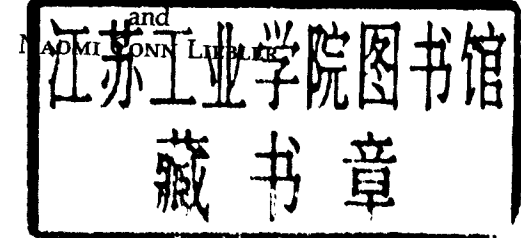 and
Naomi Conn Liebler
江苏工业学院图书馆
藏书章